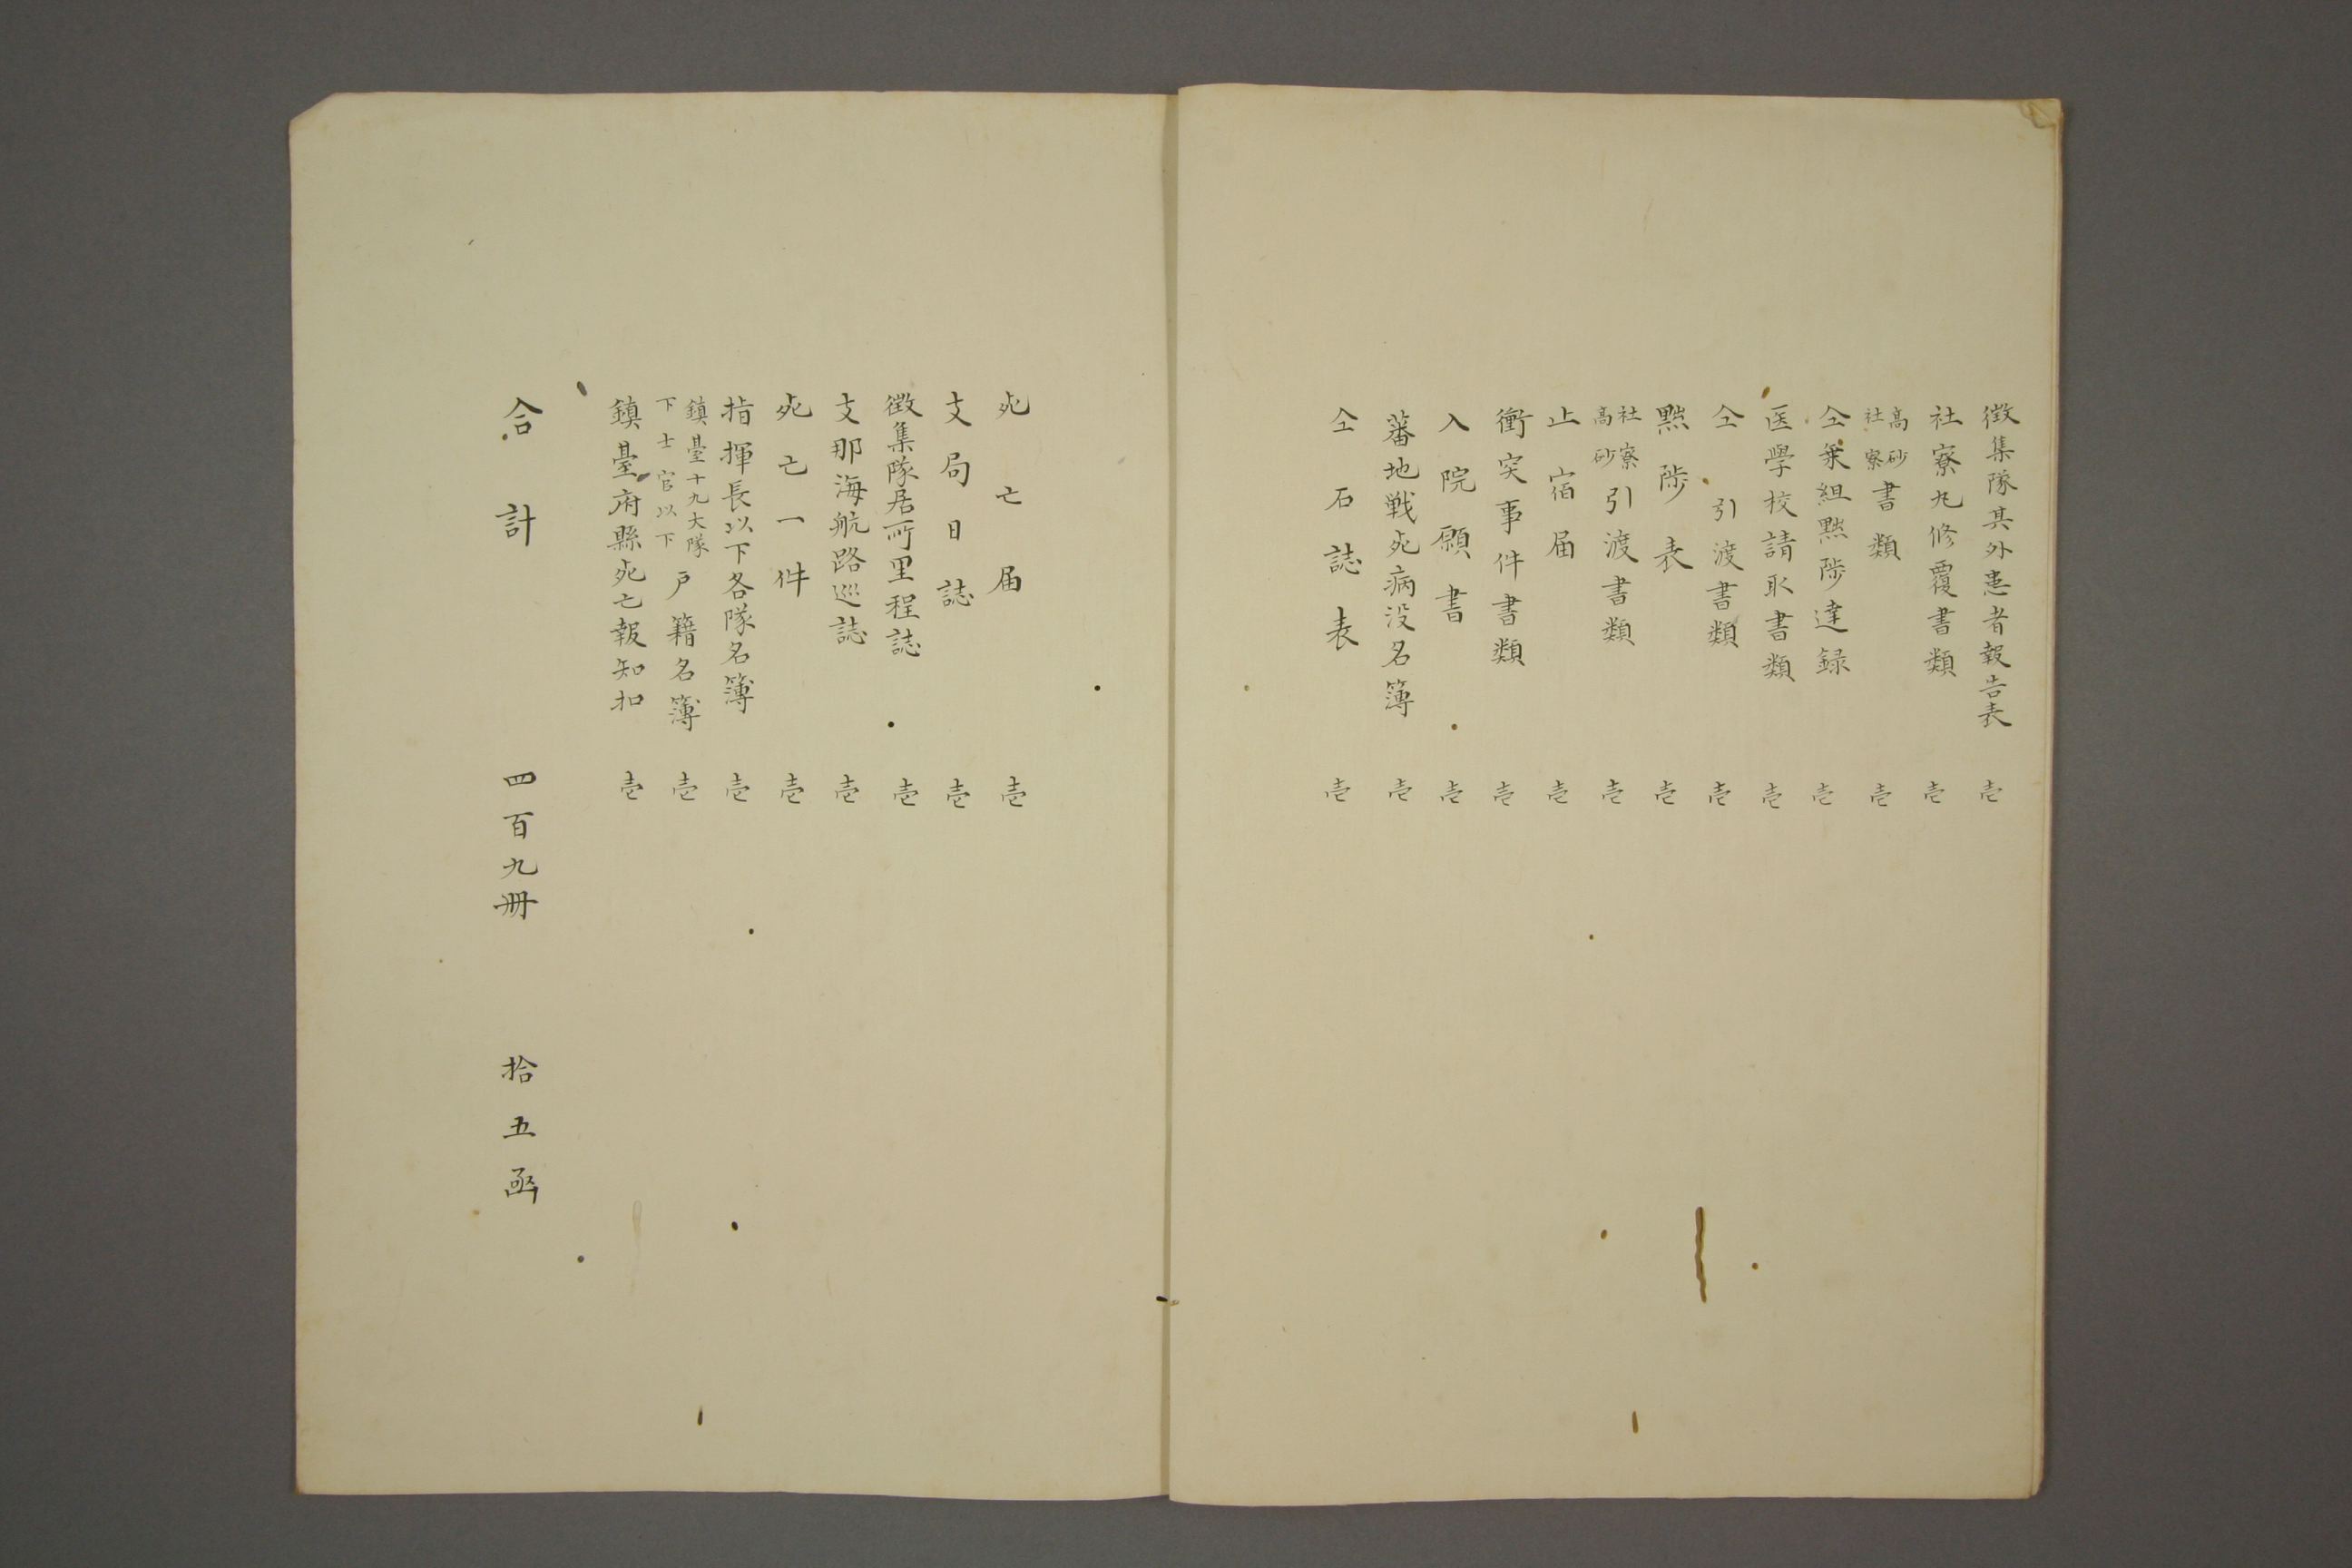 徴集隊其外患者報告表 壱
社寮丸修覆書類 壱
高砂社寮書類 壱
仝乗組黙陟達録 壱
医學校請取書類 壱
仝引渡書類 壱
黙陟表 壱
社寮高砂引渡書類 壱
止宿届 壱
衝突事件書類 壱
入院願書 壱
蕃地戦死病没名簿 壱
仝石誌表 壱
死亡届 壱
支局日誌 壱
徴集隊居所里程誌 壱
支那海航路巡誌 壱
死亡一件 壱
指揮長以下各隊名簿 壱
鎮臺十九大隊下士官以下戸籍名簿 壱
鎮臺府縣死亡報知扣 壱
合計 四百九冊 拾五函